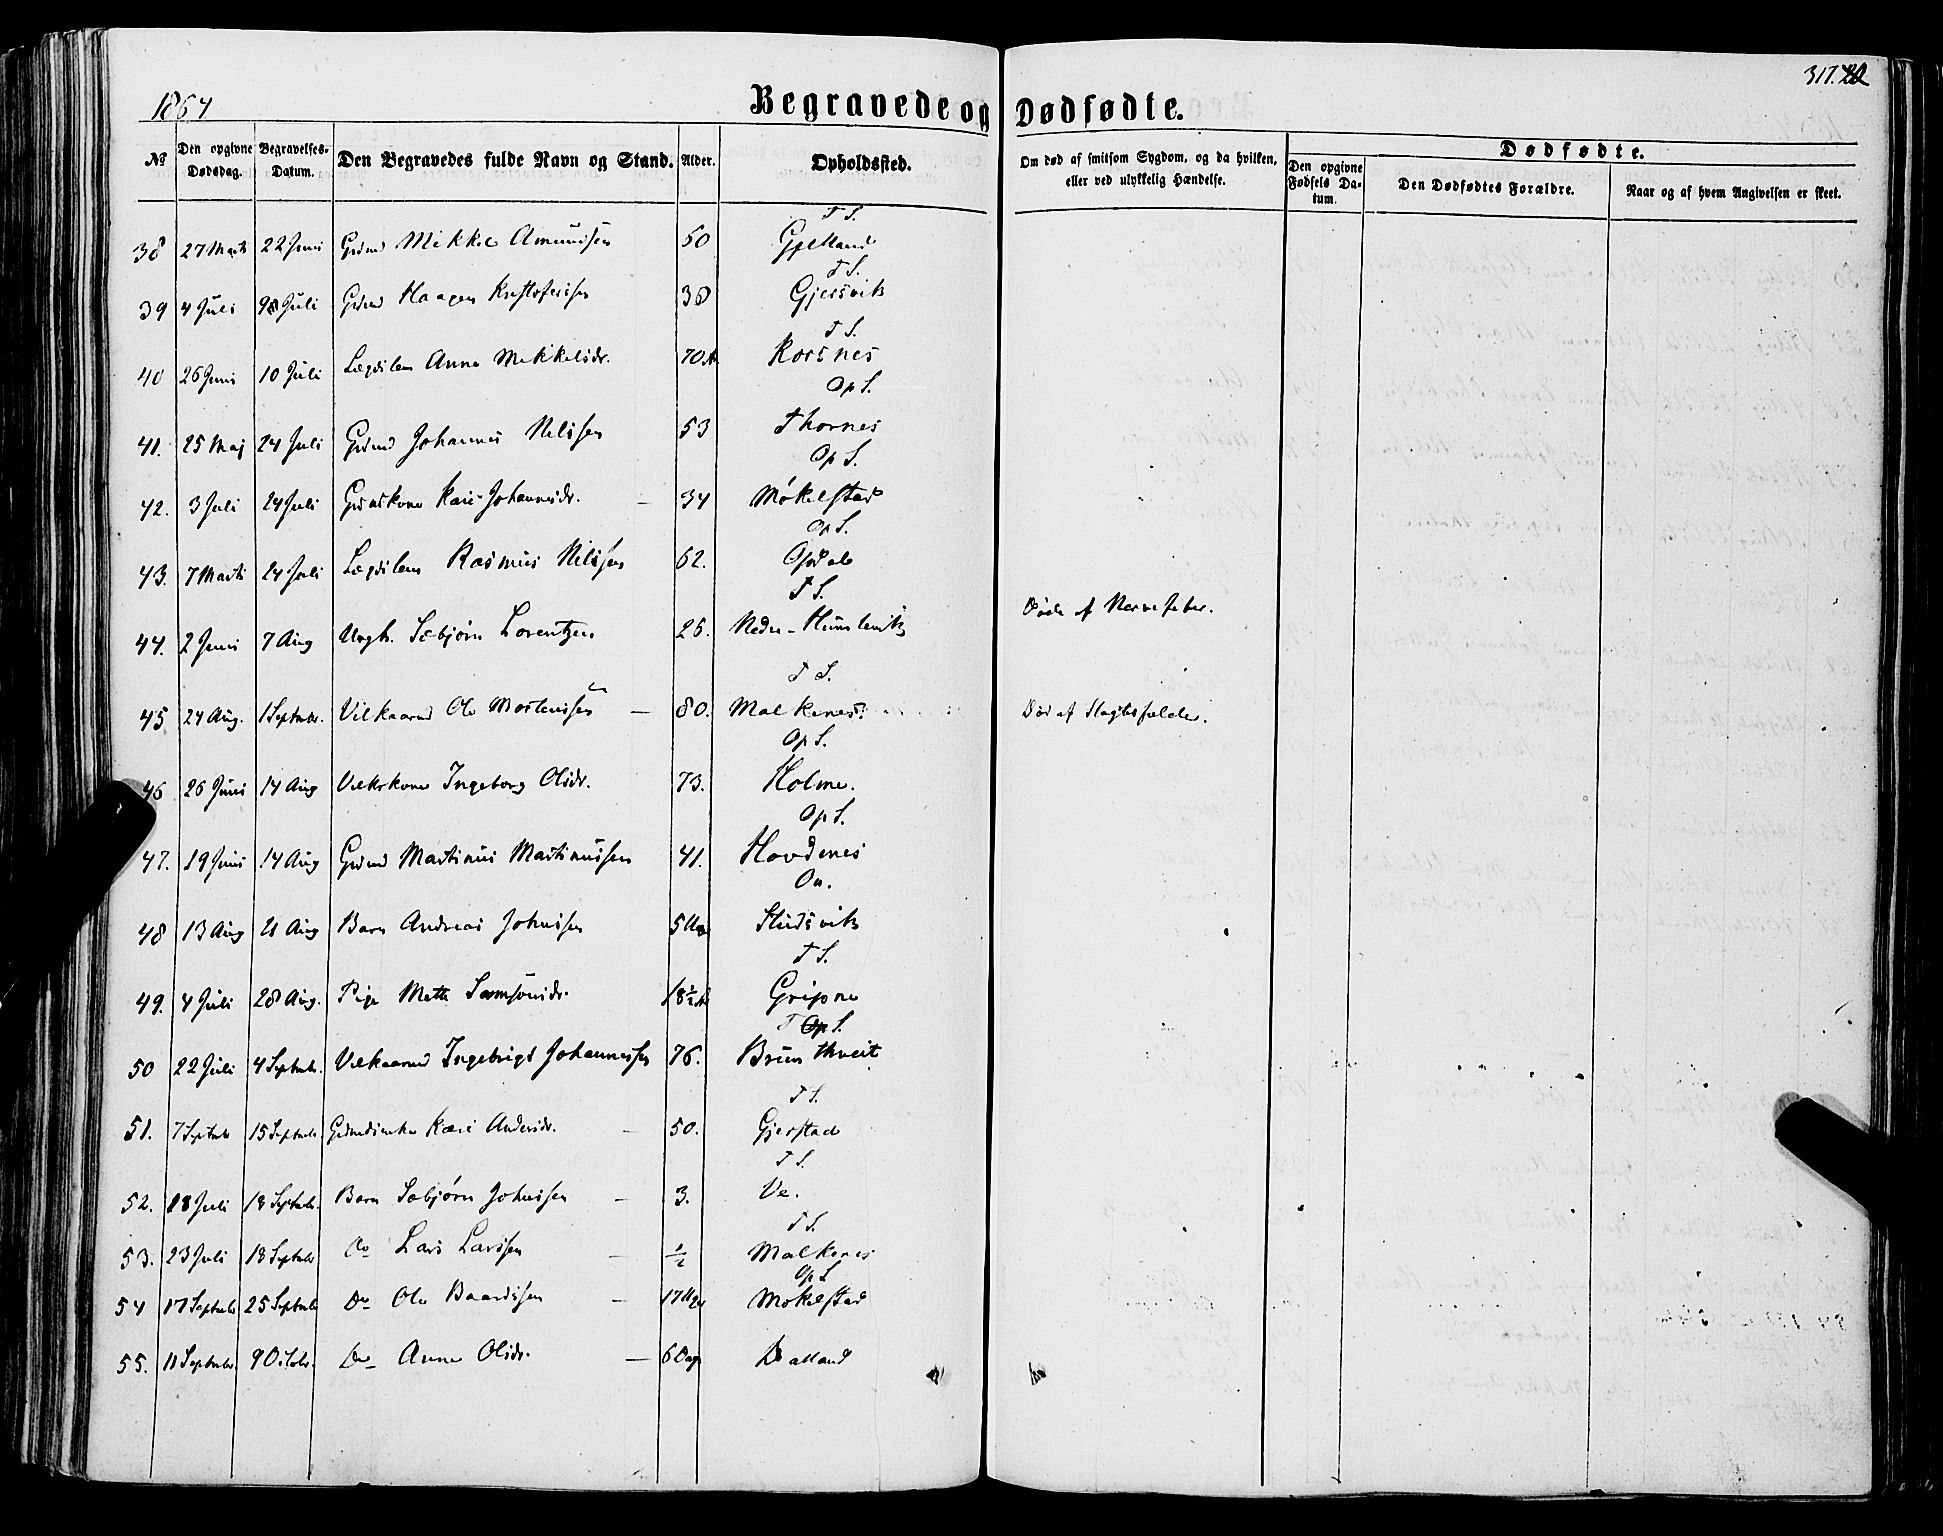 1864 Begravede og Dødfødte. 317.
№ Den opgivne Dødsdag. Begravelses-Datum. Den Begravedes fulde Navn og Stand. Alder. Opholdssted. Om død af smitsom Sygdom, og da hvilken, eller ved ulykkelig Hændelse. Dødfødte.
Den opgivne Fødsels Datum. Den Dødfødtes Forældre. Naar og af hvem Angivelsen er skeet.
T S.
38 27 Marts 22 Juni Grdmd Mikkel Amundsen 50 Gjelland
T S.
39 4 Juli 9 Juli Grdmd Haagen Kristofersen 38 Gjersvik
T S.
40 26 Juni 10 Juli Lægdslem Anna Mikkelsdr. 70 A Korsnes
Op S.
41. 25 Maj 24 Juli Grdmd Johannes Nilssen 53 Thornes
Op S.
42. 3 Juli 24 Juli Grdmskone Kari Johannesdr. — 34 Møkelstad
Op S.
43. 7 Marts 24 Juli Lægdslem Rasmus Nilssen 62. Opdal
T S.
44. 2 Juni 7 Aug Ungk. Sæbjørn Lorentzen 25. Nedre-Humlevik Døde af Nervefeber.
T S.
45 24 Aug. 1 Septembr. Vilkaarmd Ole Mortenssen — 80. Malkenes. Død af Slagtilfælde.
Op S.
46 26 Juni 14 Aug Vilkrkone Ingeborg Olsdr. 73. Holme.
Op S.
47. 19 Juni 14 Aug Grdmd Martinus Martinussen 41. Hovdenes
On.
48 13 Aug 21 Aug Barn Andreas Johnssen 5 Uger Studsvik
T S.
49. 4 Juli 28 Aug. Pige Mette Samsonsdr. 18½ A Gripne
T S.
50 22 Juli 4 Septembr. Vilkaarmd Ingebrigt Johannessen 76. Brunthveit
T S.
51. 7 Septembr 15 Septembr Grdmdsenke Kari Andersdr. — 50. Gjerstad
T S.
52. 18 Juli 18 Septembr. Barn Sæbjørn Johnssen — 3. Ve.
T S.
53. 23 Juli 18 Septembr Do Lars Larssen — ½ Malkenes
Op S
54 17 Septembr 25 Septembr Do Ole Baardssen — 17 Uger Møkelstad
55. 11 Septembr. 9 Octobr. Do Anna Olsdr. — 6 Dage Dalland